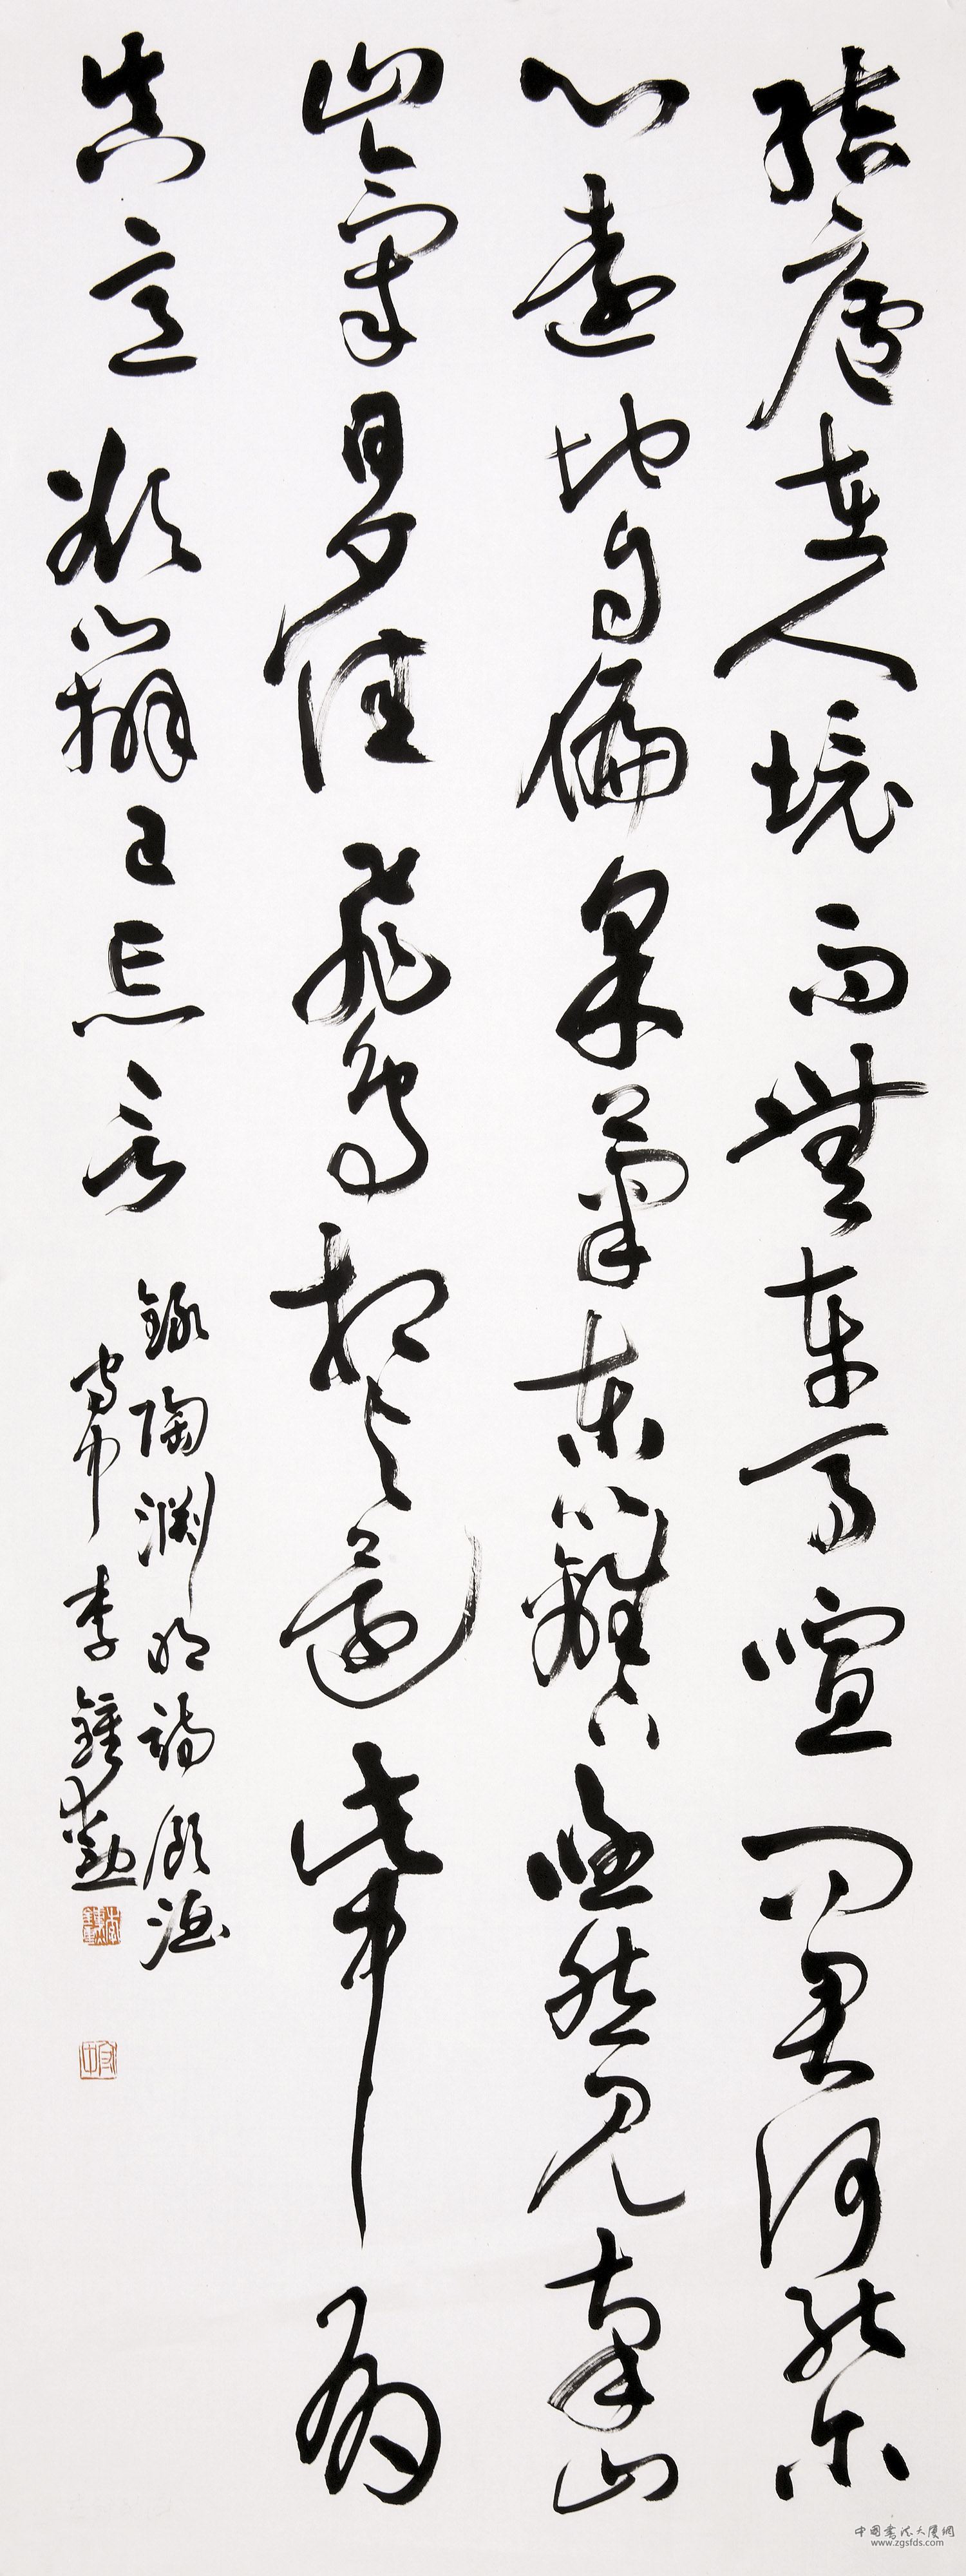 結廬在人境而無車馬喧問君何能尔
心遠地自偏采菊東籬下悠然見南山
山氣日夕佳飛鳥相与還此中有
真意欲辨已忘言
錄陶淵明詩飲酒
守中李鍾勳
中國書法大廈網
www.zgsfds.com